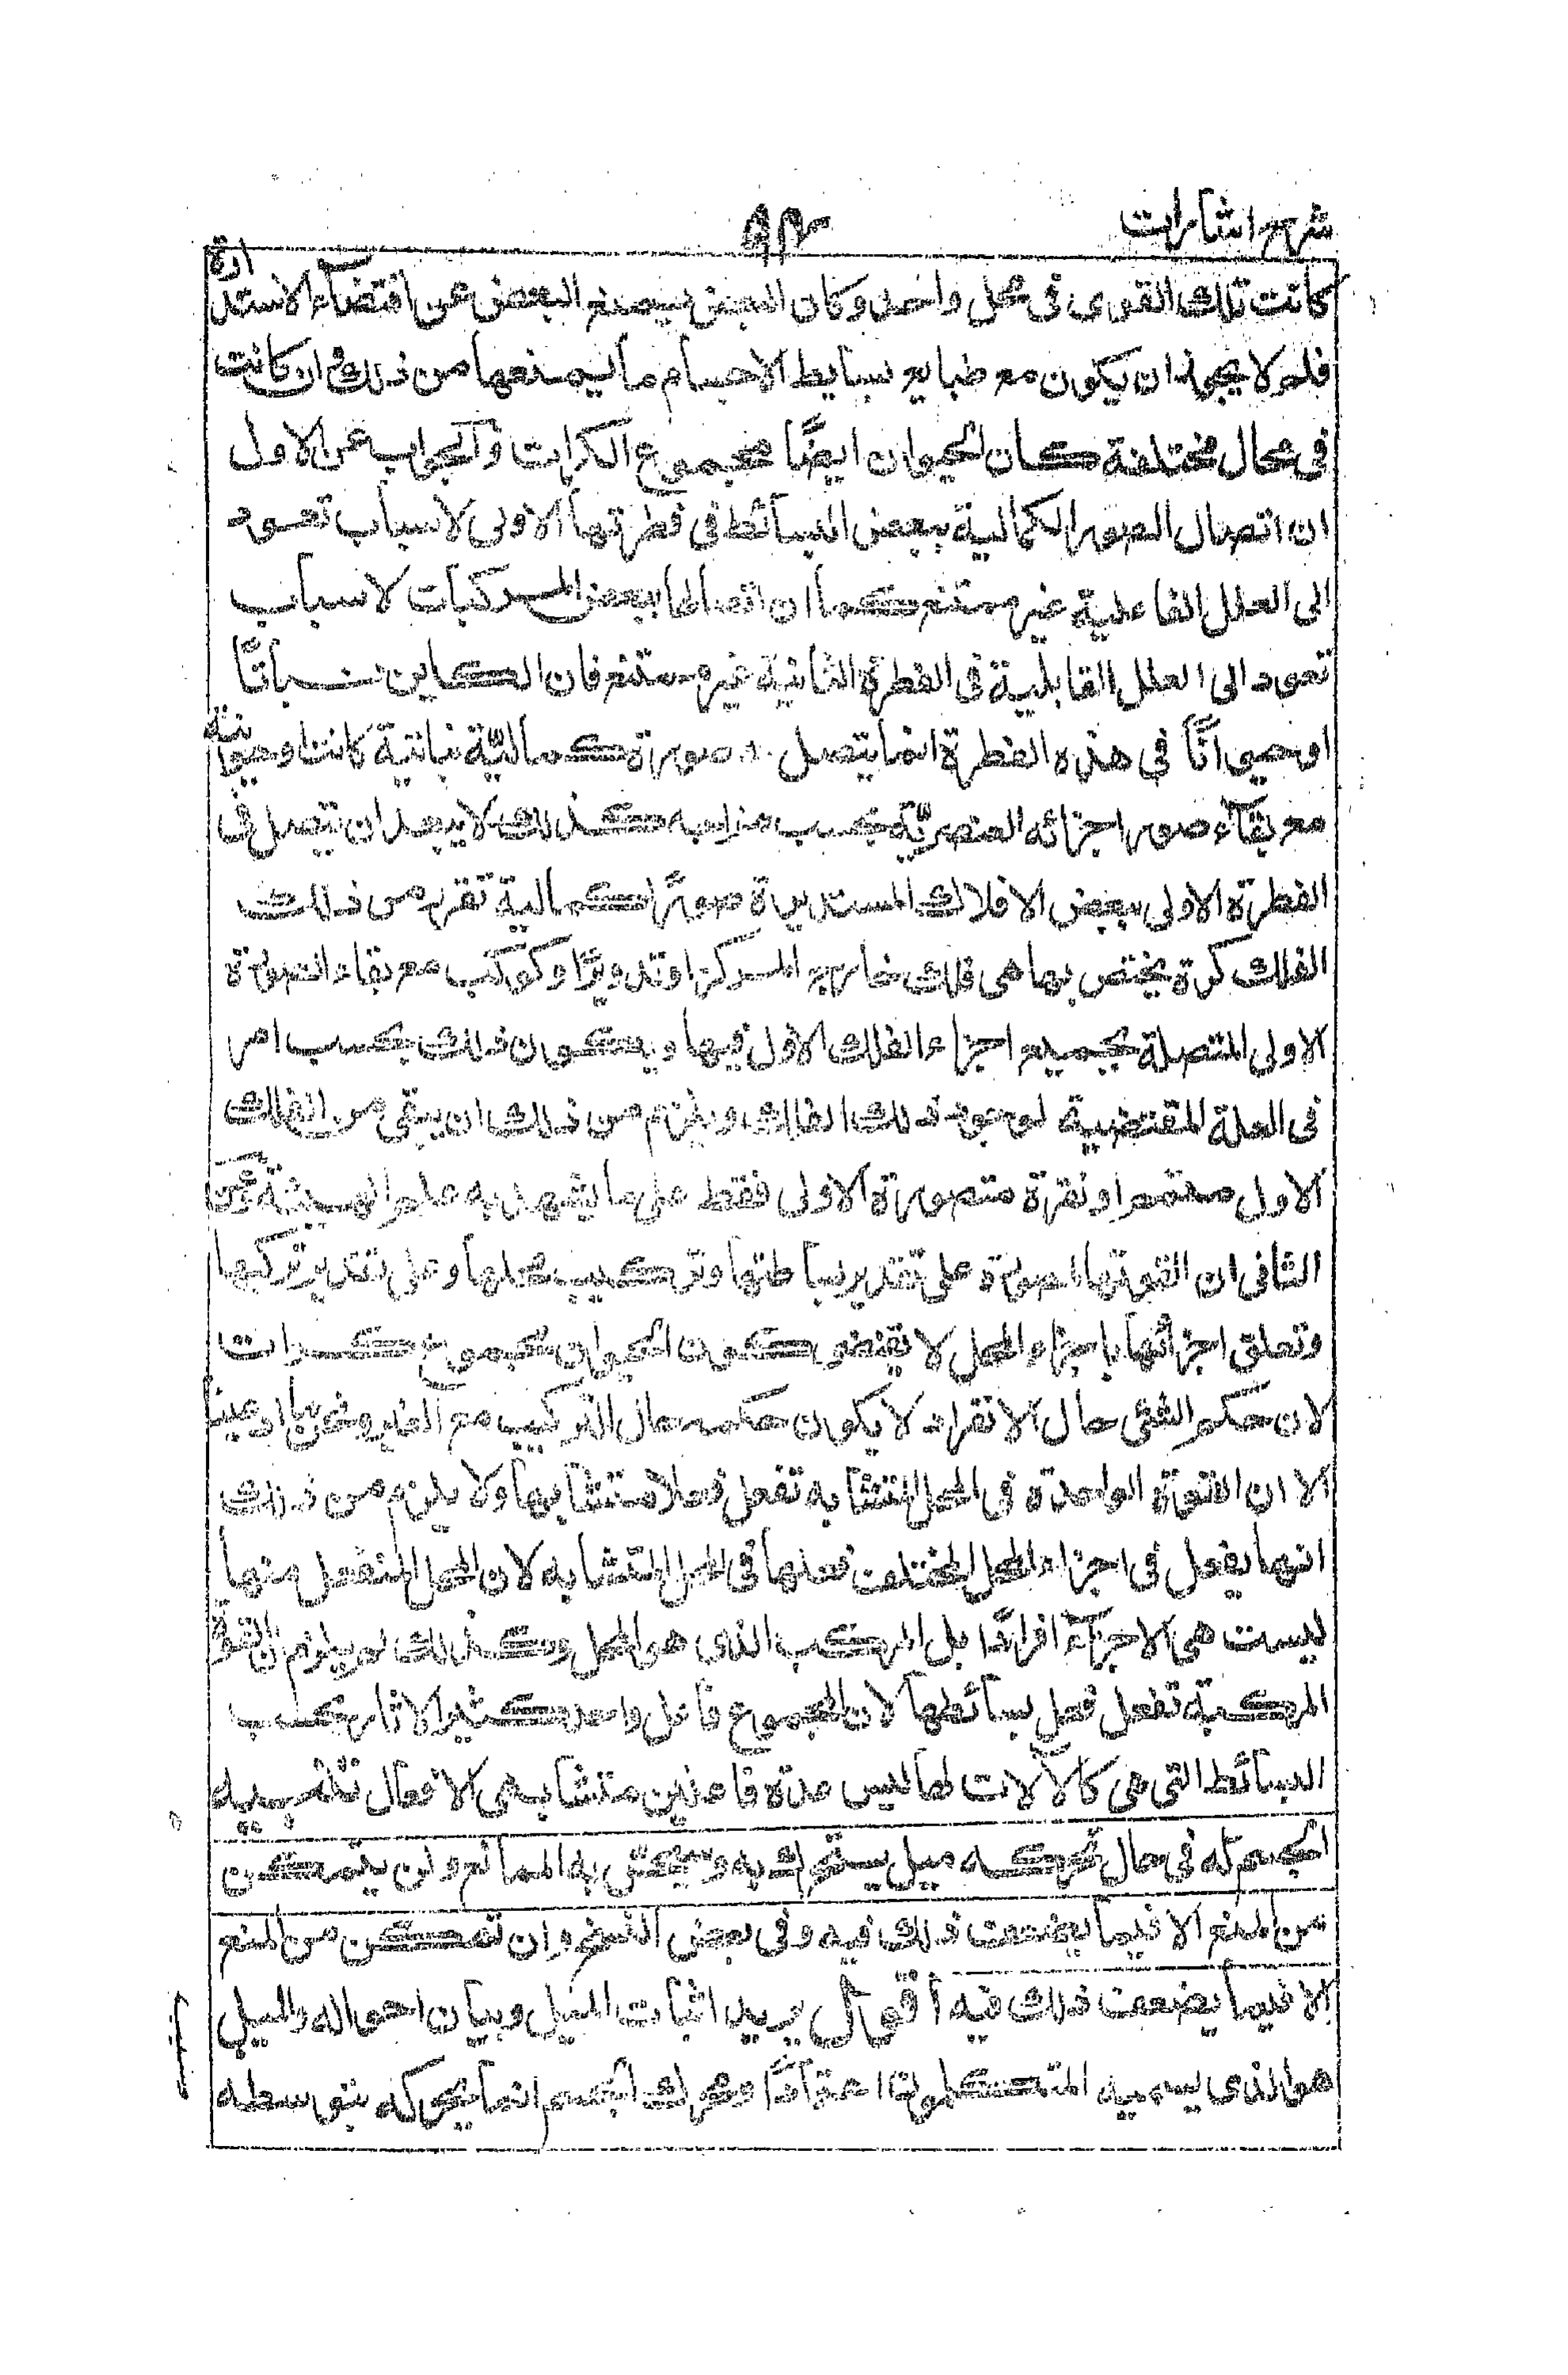 شرح اشارات
٩٣
كانت تلك القوى فى محل واحد وكان البعض يمنع البعض عن اقتضاء الاستدارة
فلم لا يجوز ان يكون مع طبايع بسايط الاجسام ما يمنعها من ذلك و ان كانت
فى محال مختلفة كان الحيوان ايضًا مجموع الكرات والجواب عن الاول
ان اتصال الصور الكمالية ببعض البسائط فى فطرتها الاولى لاسباب تعود
الى العلل الفاعلية غير ممتنع كما ان اتصالها ببعض المركبات لاسباب
تعود الى العلل القابلية فى الفطرة الثانية غير ممتنع فان الكاين نباتًا
او حيوانًا فى هذه الفطرة انما يتصل به صورة كماليّة نباتية كانت او حيوانية
مع بقاء صور اجزائه العنصريّة بحسب مزاجه كذلك لا يبعد ان يتصل فى
الفطرة الاولى ببعض الافلاك المستديرة صورًا كمالية تقرر من ذلك
الفلك كرة يختص بها هى فلك خارج المركز او تدويرًا و كوكب مع بقاء الصورة
الاولى المتصلة بجميع اجزاء الفلك الاول فيها ويكون ذلك بحسب امر
فى العلة المقتضية لوجود ذلك الفلك ويلزم من ذلك ان يبقى من الفلك
الاول متمم او نقرة متصورة الاولى فقط على ما يشهد به علم الهيئة وعن
الثانى ان القوة المصورة على تقدير بساطتها وتركيب محلها وعلى تقدير تركبها
وتعلق اجزائها باجزاء المحل لا يقتضى كون الحيوان مجموع كرات
لان حكم الشئ حال الانفراد لا يكون حكمه حال التركيب مع الغير ونحن ما ادعينا
الا ان القوة الواحدة فى المحل المتشابه تفعل فعلا متشابها ولا يلزم من ذلك
انها يفعل فى اجزاء المحل المختلف فعلها فى المحل المتشابه لان المحل المنفعل منها
ليست هى الاجزاء افرادًا بل المركب الذى هو المحل وكذلك لم يلزم ان القوة
المركبة تفعل فعل بسائطها لان المجموع فاعل واحد كثير الاثار بحسب
البسائط التى هى كالآلات لها ليس عدة فاعلين متشابهى الافعال تنبيه
الجسم له فى حال تحركه ميل يتحرك به ويحس به الممانع ولن يتمكن
من المنع الا فيما يضعف ذلك فيه وفى بعض النسخ وان تمكن من المنع
الا فيما يضعف ذلك فيه اقول يريد اثبات الميل وبيان احواله والميل
هو الذى يسميه المتكلمون اعتمادًا ومحرك الجسم انما يحركه بتوسطه